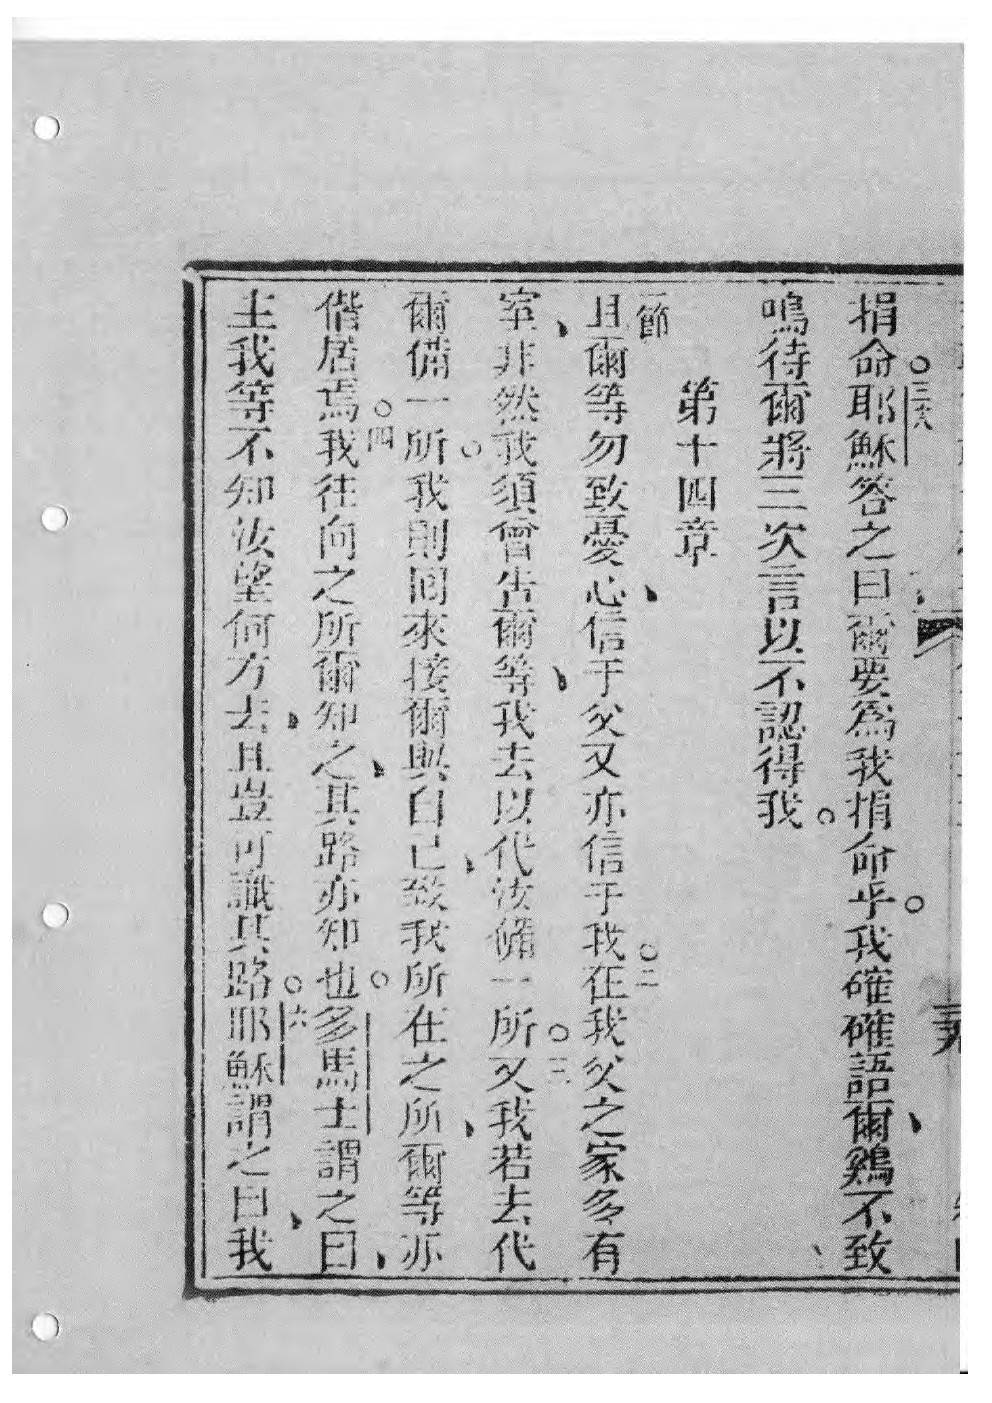 捐命。三八耶穌答之曰爾要為我捐命乎。我確確語爾、鷄不致
鳴待爾將三次言以不認得我。
第十四章
一節且爾等勿致憂心、信于父又亦信于我。二在我父之家多有
室、非然我須曾告爾等、我去以代汝備一所。三又我若去代
爾備一所。我則囘來接爾與自己、致我所在之所、爾等亦
偕居焉。四我往向之所爾知之、其路亦知也。多馬士謂之曰、
主我等不知汝望何方去、且豈可識其路。六耶穌謂之曰、我